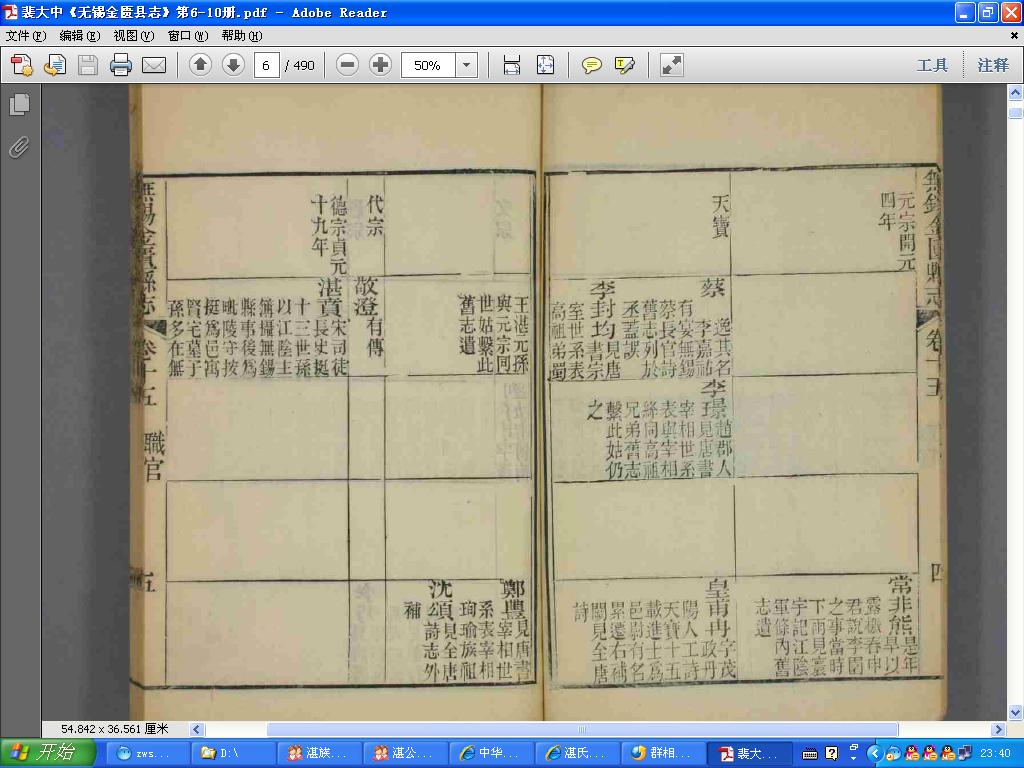 裴大中《无锡金匮县志》第6-10册.pdf - Adobe Reader
文件(F) 编辑(E) 视图(V) 窗口(W) 帮助(H)
6 / 490 50% 工具 注释
無錫金匱縣志
卷十五
四
元宗開元
四年
天寶
蔡
逸其名
李嘉祐
有宴無錫
蔡長官詩
舊志列於
丞蓋誤
李封均見唐
書宗
室世系表
高祖弟蜀
李景趙郡人
見唐書
宰相世系
表與宰相
絳同高祖
兄弟舊志
繫此姑仍
之
常非熊是年
旱以
露檄春申
君說李園
之事當時
下雨見寰
宇記江陰
軍條內舊
志遺
皇甫冉字茂
政丹
陽人工詩
天寶十五
載進士為
邑尉有名
累遷右補
闕見全唐
詩
王湛元孫
與元宗同
世姑繫此
舊志遺
鄭豐見唐書
宰相世
系表宰相
珣瑜族祖
沈頌見全唐
詩志外
補
代宗
德宗貞元
十九年
敬澄有傳
湛賁宋司徒
長史挺
十三世孫
以江陰主
簿攝無錫
縣事後為
毗陵守按
挺為邑寓
賢宅墓于
孫多在無
無錫金匱縣志
卷十五
職官
五
54.842 x 36.561 厘米
开始 zws... D:\ 湛族... 湛公... 中华... 湛氏... 群相... 裴大... 23:40